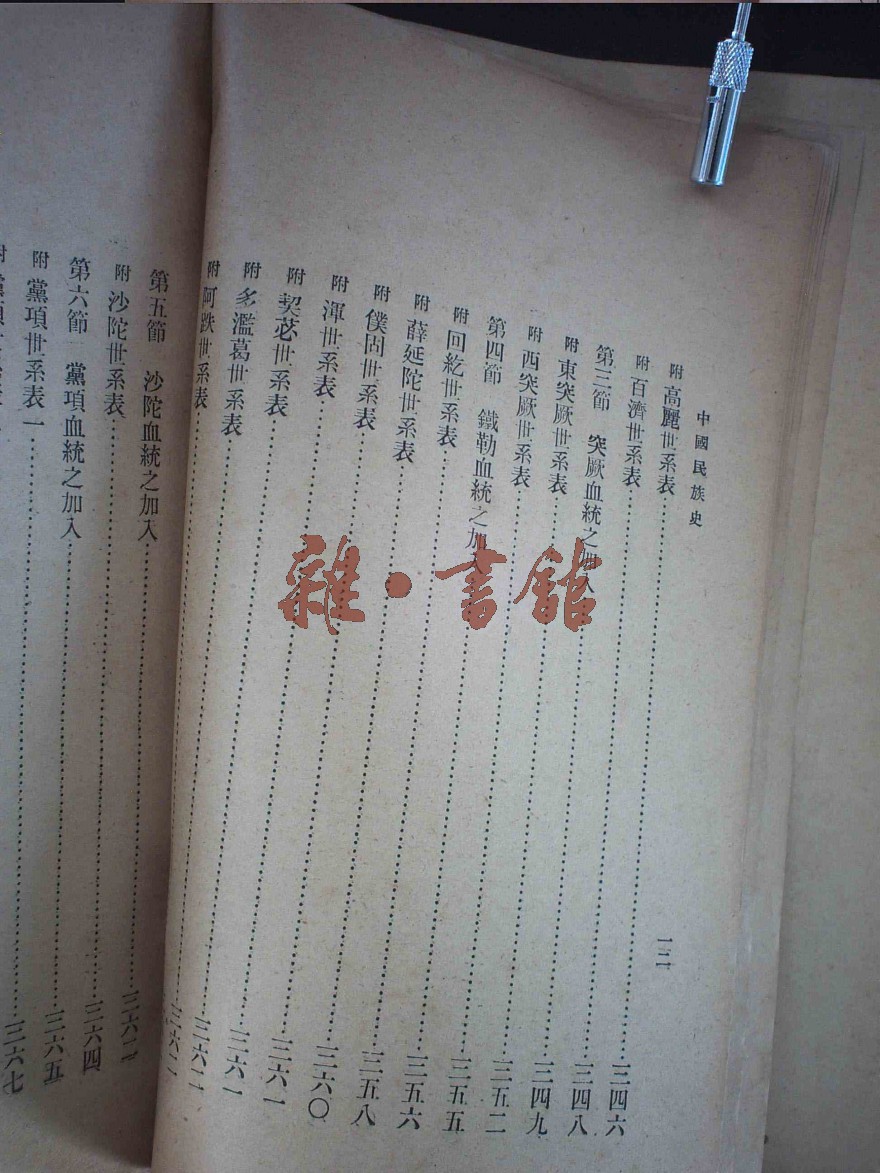 中國民族史
一二
附 高麗世系表 三四六
附 百濟世系表 三四八
第三節 突厥血統之加入 三四九
附 東突厥世系表 三五二
附 西突厥世系表 三五五
第四節 鐵勒血統之加入 三五六
附 回紇世系表 三五八
附 薛延陀世系表 三六〇
附 僕固世系表 三六一
附 渾世系表 三六一
附 契苾世系表 三六二
附 多濫葛世系表 三六二
附 阿跌世系表
第五節 沙陀血統之加入 三六二
附 沙陀世系表 三六四
第六節 黨項血統之加入 三六五
附 黨項世系表一 三六七
雜·書館